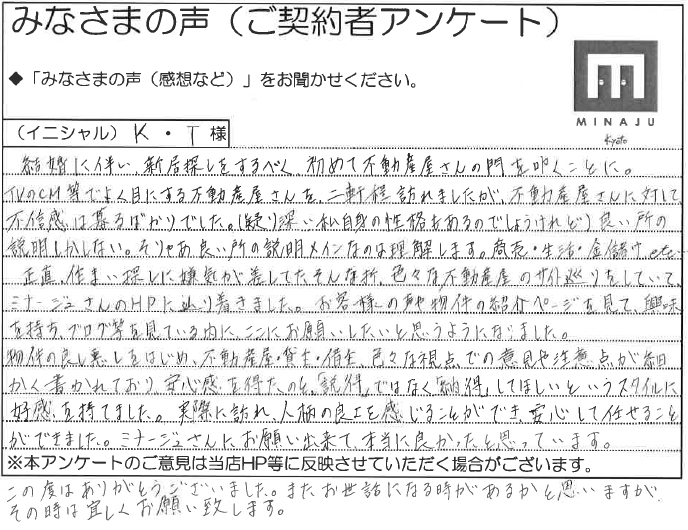 みなさまの声（ご契約者アンケート）
◆「みなさまの声（感想など）」をお聞かせください。
MINAJU
Kyoto
（イニシャル） K ・ T 様
結婚に伴い、新居探しをするべく、初めて不動産屋さんの門を叩くことに。
TVのCM等でよく目にする不動産屋さんを、二軒程訪れましたが、不動産屋さんに対して、
不信感は募るばかりでした。（疑り深い私自身の性格もあるのでしょうけれど）良い所の
説明しかしない。そりゃあ良い所の説明メインなのは理解します。商売・生活・金儲け、etc…
正直、住まい探しに嫌気が差してたそんな折、色々な不動産屋のサイト巡りをしていて、
ミナージュさんのHPに辿り着きました。お客様の声や物件の紹介ページを見て、興味
を持ち、ブログ等を見ている内に、ここにお願いしたいと思うようになりました。
物件の良し悪しをはじめ、不動産屋・貸主・借主、色々な視点での意見や注意点が細
かく書かれており、安心感を得たのと、「説得」ではなく「納得」してほしいというスタイルに
好感を持てました。実際に訪れ、人柄の良さを感じることができ、安心して任せること
ができました。ミナージュさんにお願い出来て、本当に良かったと思っています。
※本アンケートのご意見は当店HP等に反映させていただく場合がございます。
この度はありがとうございました。またお世話になる時があるかと思いますが、
その時は宜しくお願い致します。